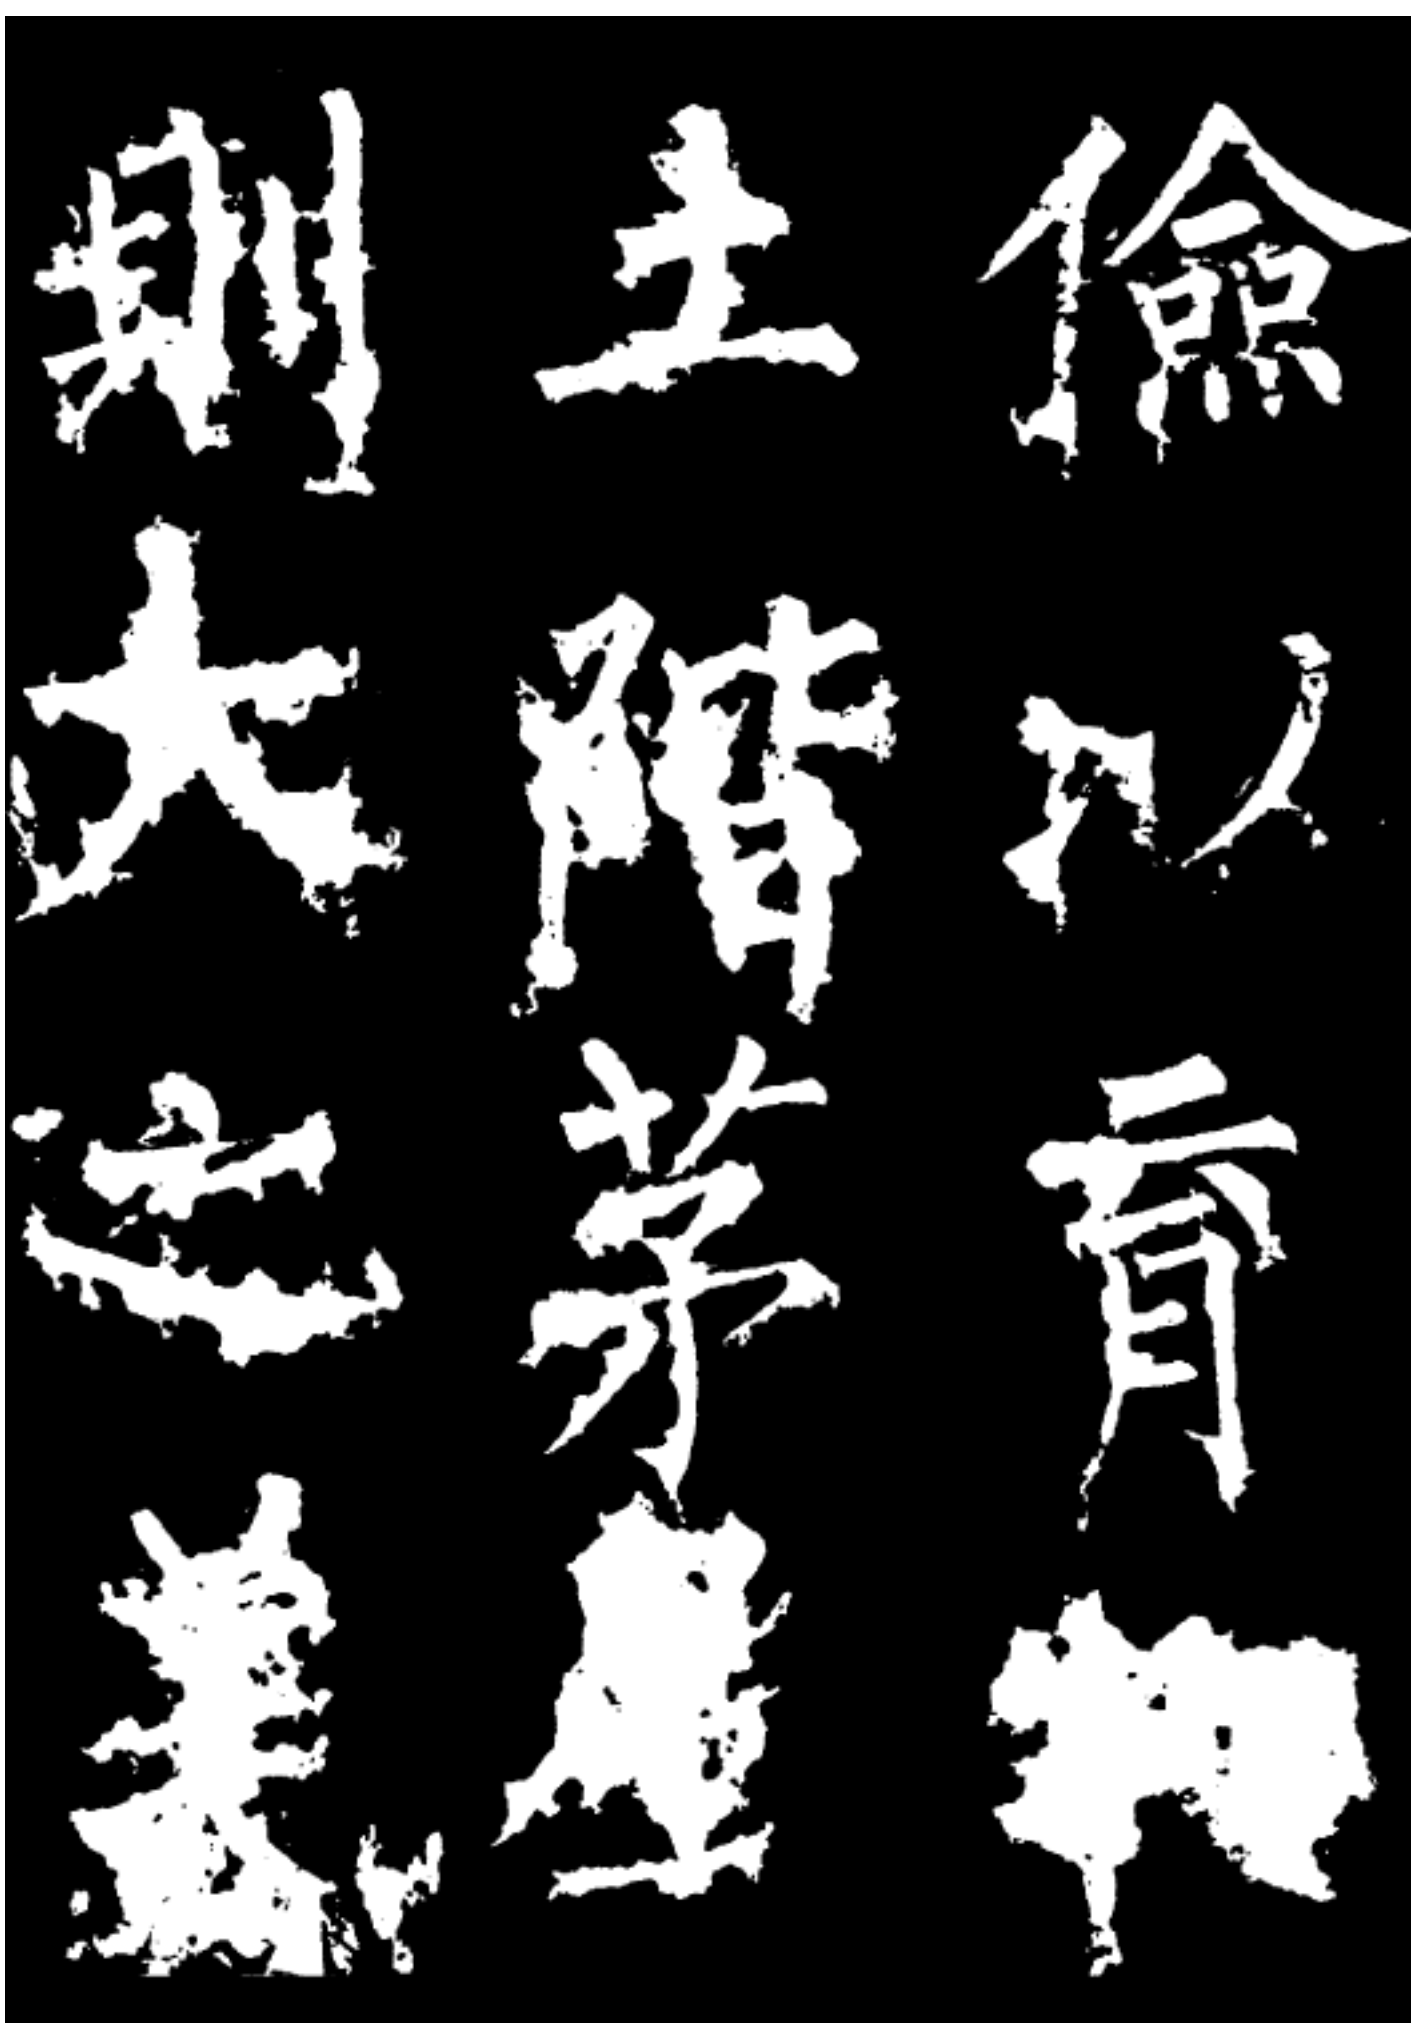 儉以育
土階茅屋
則大之